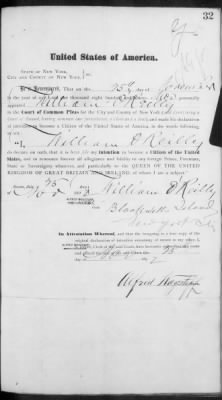 32
United States of America.
STATE OF NEW YORK,
CITY AND COUNTY OF NEW YORK, } ss.
Be it Remembered, That on the 25th day of
in the year of our Lord one thousand eight hundred and personally
appeared William O'Reilly in
the Court of Common Pleas for the City and County of New York (said Court being a
Court of Record, having common law jurisdiction, and a Clerk and Seal), and made his declaration
of intention to become a Citizen of the United States of America, in the words following:
"I, William O'Reilly
do declare on oath, that it is bona fide my intention to become a Citizen of the United
States, and to renounce forever all allegiance and fidelity to any foreign Prince, Potentate,
State or Sovereignty whatever, and particularly to the QUEEN OF THE UNITED
KINGDOM OF GREAT BRITAIN AND IRELAND, of whom I am a subject."
Sworn, this 25
William O'Reilly
Blackwells Island
New York City
In Attestation Whereof, and that the foregoing is a true copy of the
original declaration of intention remaining of record in my office, I,
Alfred